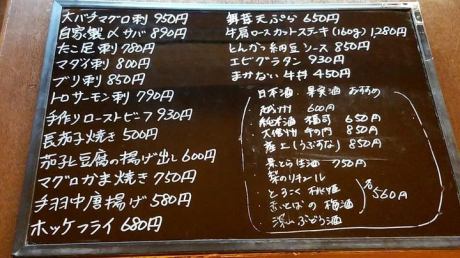 大バチマグロ刺 950円
自家製〆サバ 890円
たこ足刺 780円
マダイ刺 800円
ブリ刺 850円
トロサーモン刺 790円
手作りローストビーフ 930円
長茄子焼き 500円
茄子と豆腐の揚げ出し 600円
マグロかま焼き 750円
手羽中唐揚げ 580円
ホッケフライ 680円
舞茸天ぷら 650円
牛肩ロースカットステーキ(160g) 1280円
とんかつ納豆ソース 850円
エビグラタン 930円
まかない牛丼 450円
日本酒・果実酒 おすすめ
・越州 600円
・純米酒 福司 650円
・850円
・産土(うぶすな) 850円
・750円
・梨のリキュール
・とろこく桃姫
・あいとぱの梅酒
・深山ぶどう酒
各560円